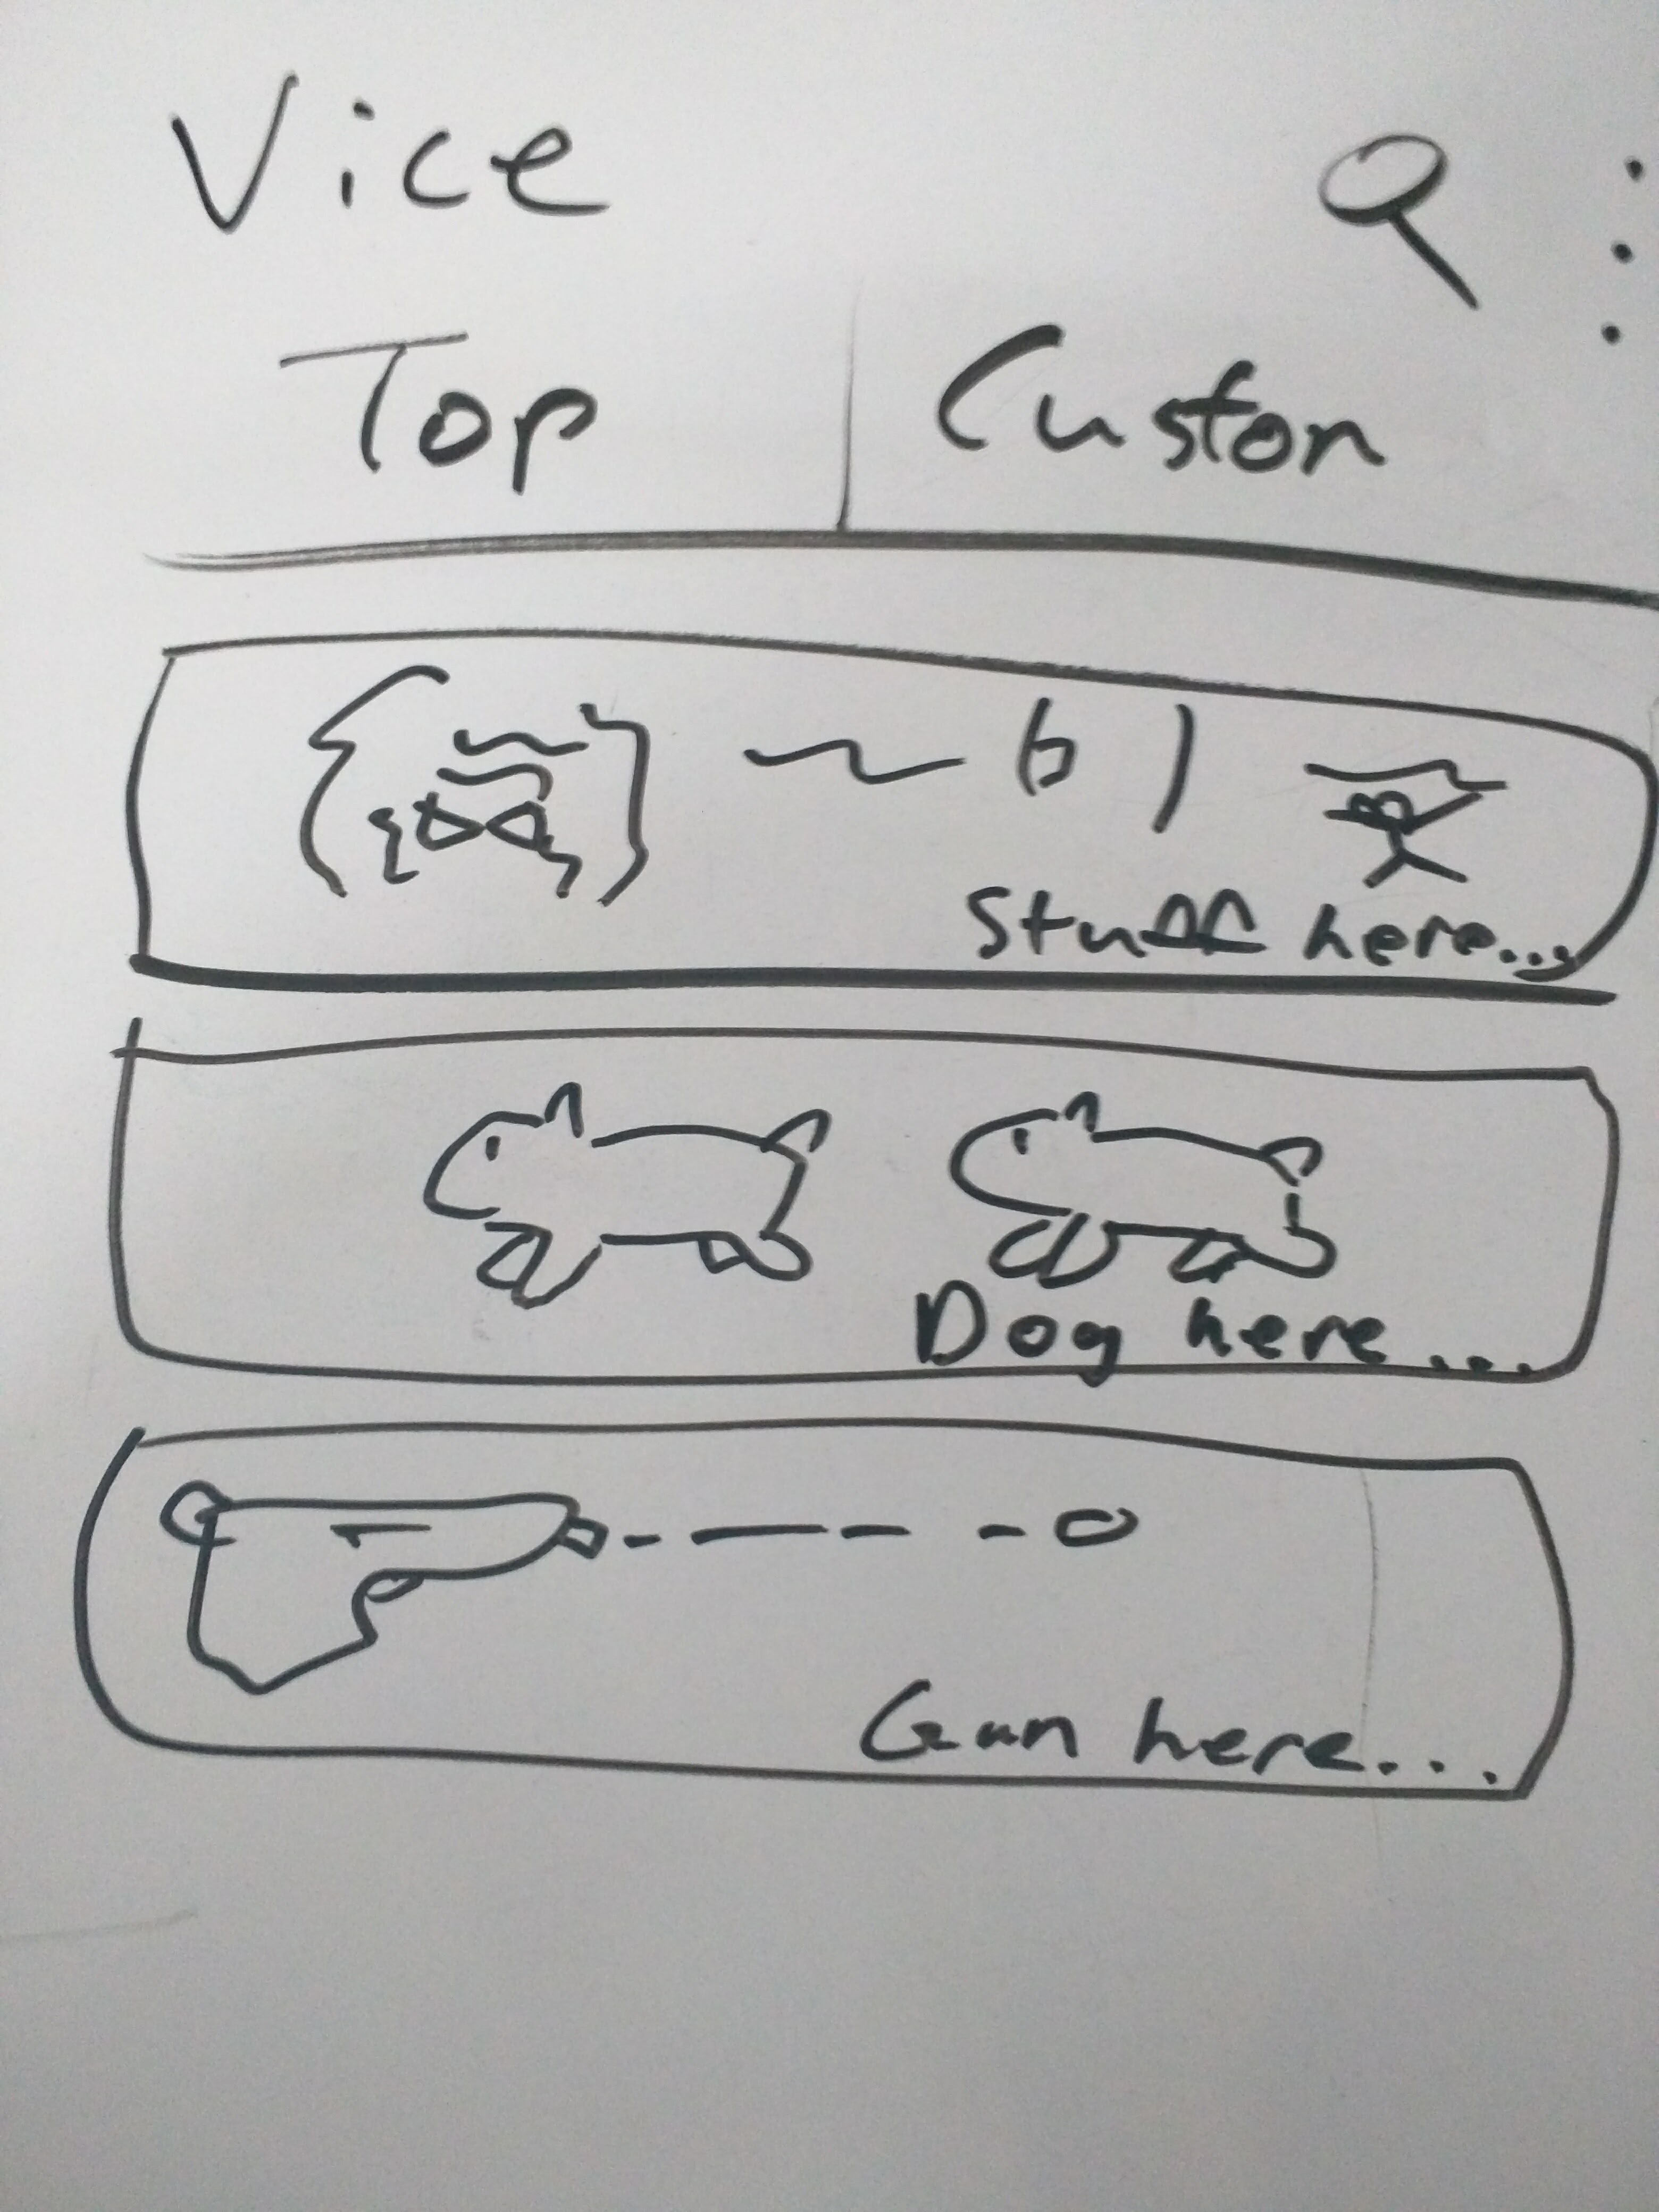 Vice
Top Custon
Stuff here...
Dog here...
Gun here...